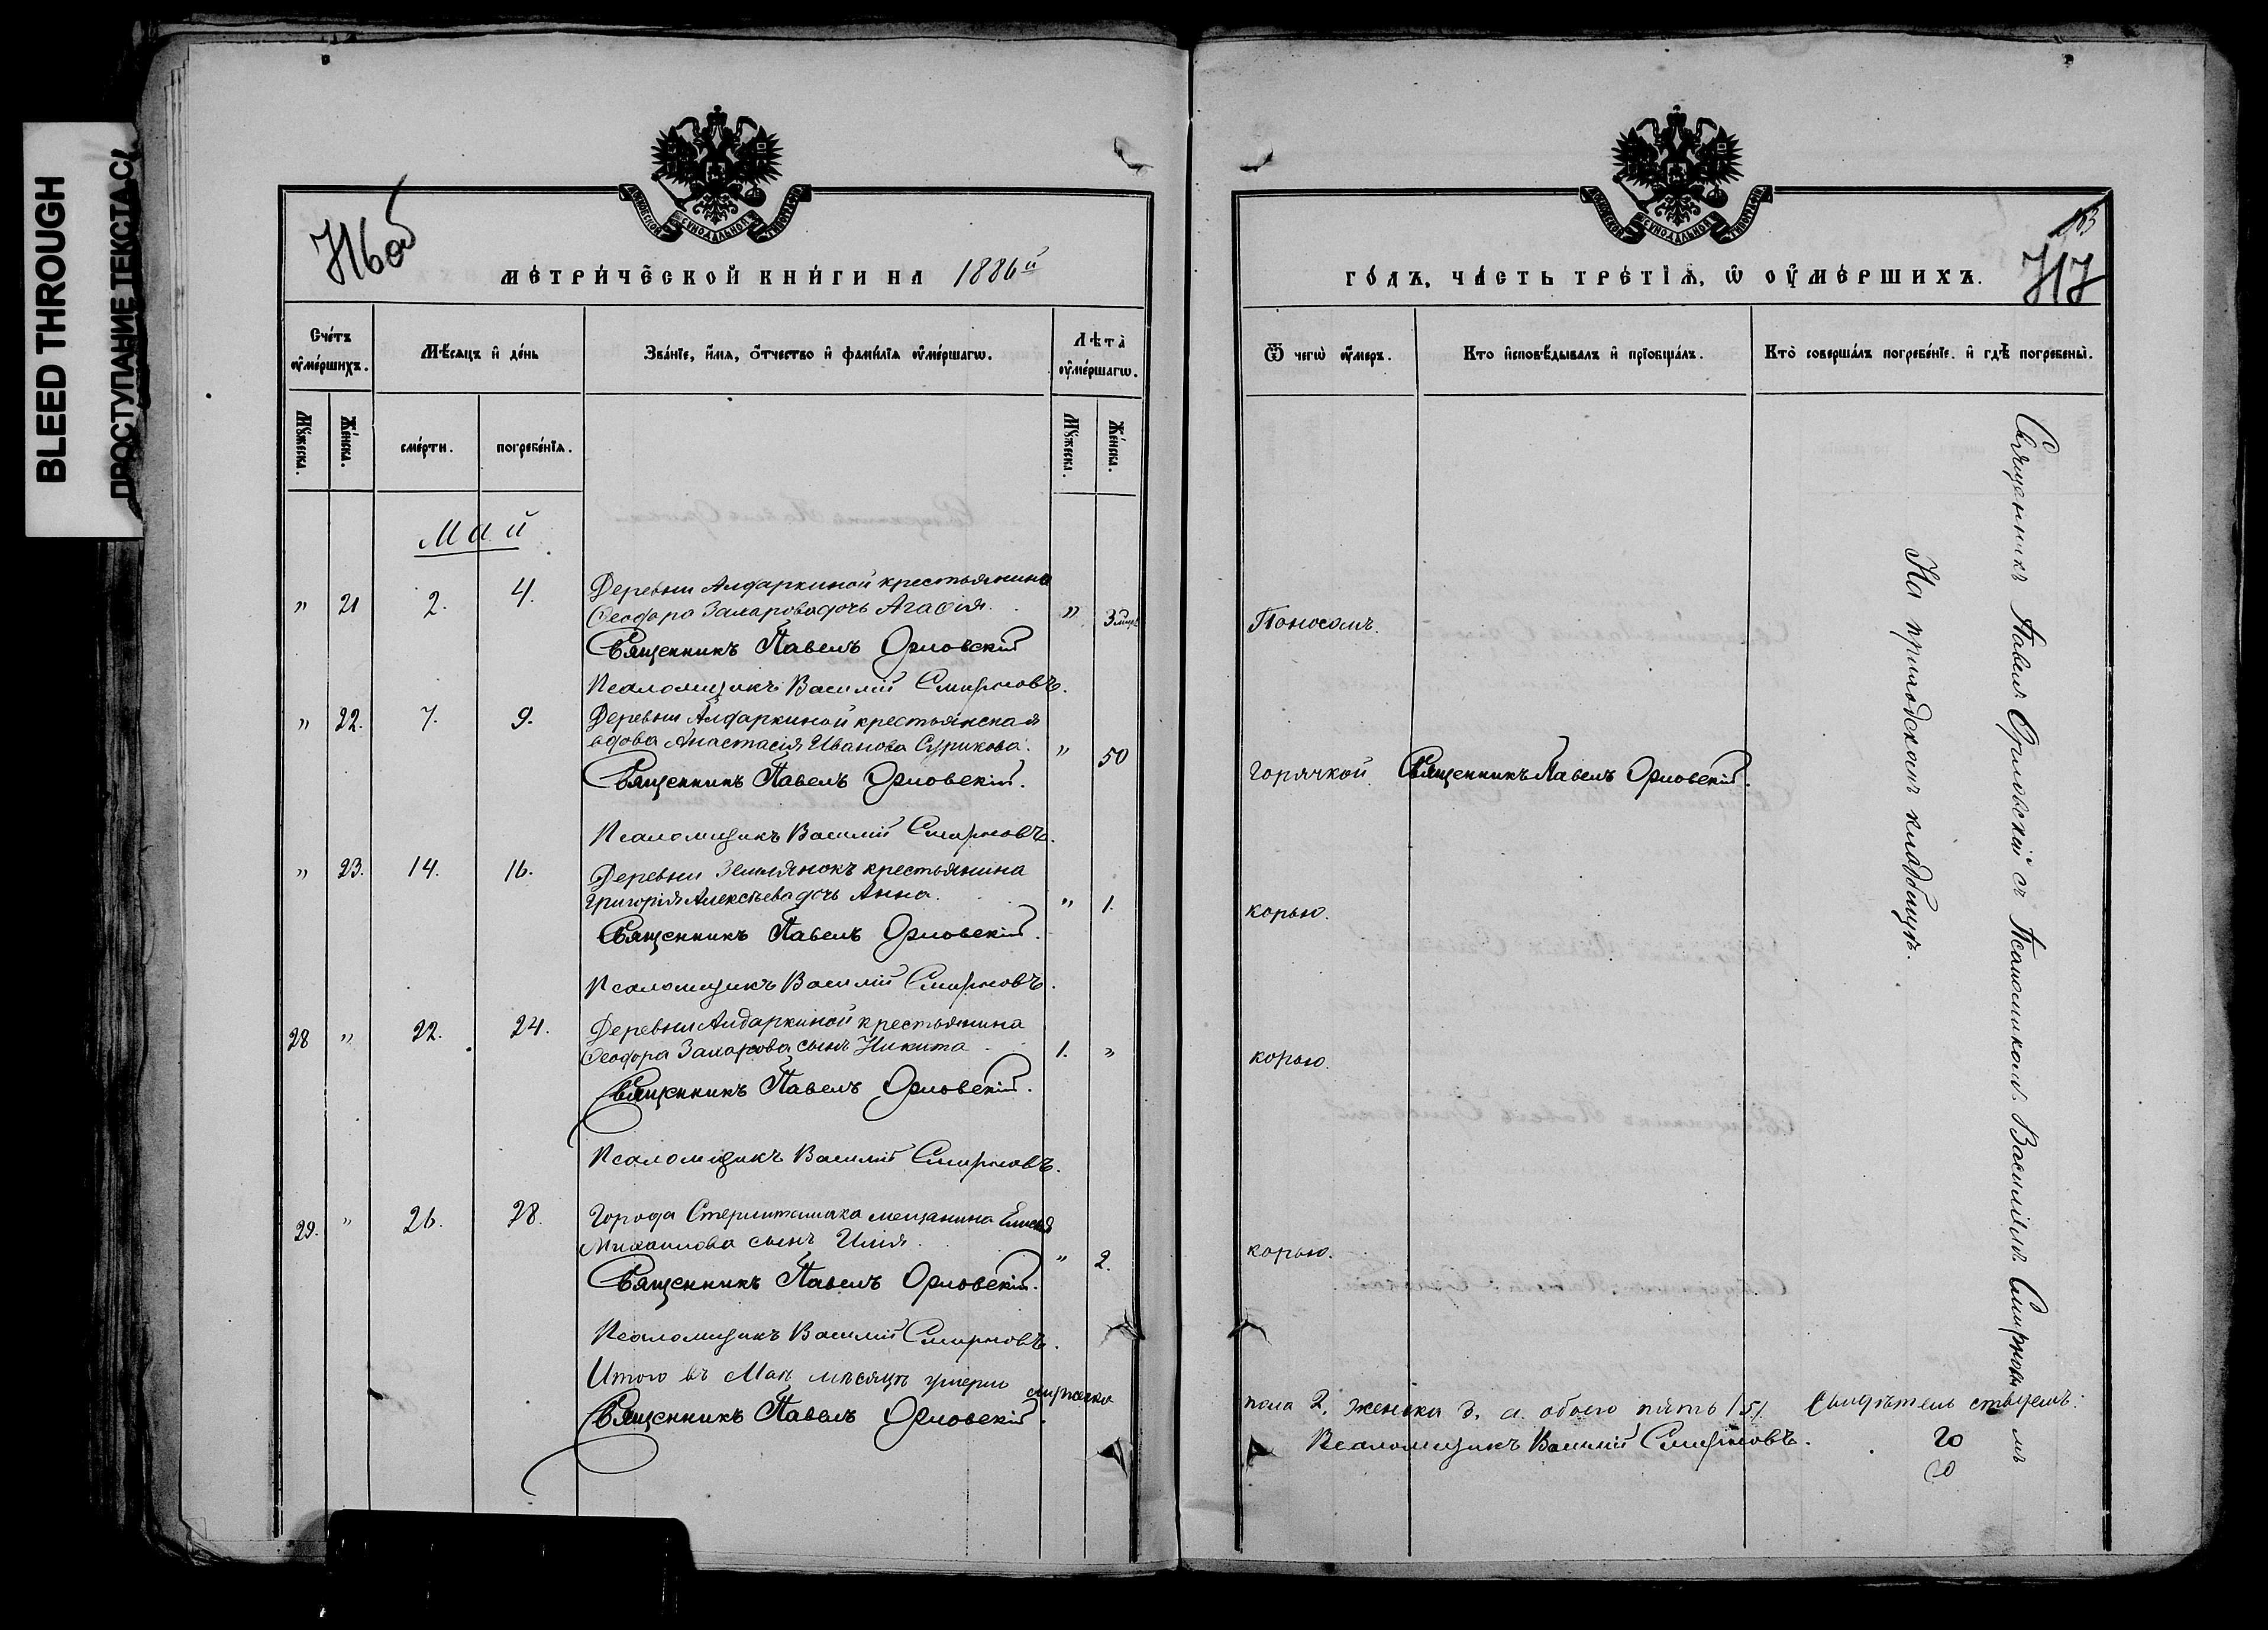 BLEED THROUGH
ПРОСТУПАНИЕ ТЕКСТА С
716об
МЕТРИЧЕСКОЙ КНИГИ НА 1886й
Счетъ
оумершихъ.
Мѣсяцъ и день
Званіе, имя, отчество и фамилія оумершагѡ.
Лѣта
оумершагѡ.
Мужеска.
Женска.
смерти.
погребенія.
Мужеска.
Женска.
Май
" 21 2. 4. Деревни Алдаркиной крестьянина
Ѳеодора Захарова дочь Агаѳія. " 3 мѣс
Священникъ Павелъ Орловскій
Псаломщикъ Василій Смирновъ.
" 22. 7. 9. Деревни Алдаркиной крестьянская
вдова Анастасія Иванова Сурикова. " 50
Священникъ Павелъ Орловскій.
Псаломщикъ Василій Смирновъ.
" 23. 14. 16. Деревни Землянокъ крестьянина
Григорія Алексѣева дочь Анна. " 1.
Священникъ Павелъ Орловскій.
Псаломщикъ Василій Смирновъ.
28 " 22. 24. Деревни Алдаркиной крестьянина
Ѳеодора Захарова сынъ Никита 1. "
Священникъ Павелъ Орловскій.
Псаломщикъ Василій Смирновъ.
29. " 26. 28. Города Стерлитамака мещанина Елисея
Михаилова сынъ Илія. " 2.
Священникъ Павелъ Орловскій.
Псаломщикъ Василій Смирновъ.
Итого въ Маѣ мѣсяцѣ умерло мужеска
Священникъ Павелъ Орловскій.
ГОДЪ, ЧАСТЬ ТРЕТІЯ, Ѡ ОУМЕРШИХЪ.
717
Ѿ чегѡ оумеръ.
Кто исповѣдывалъ и пріобщалъ.
Кто совершалъ погребеніе. и гдѣ погребены.
Поносомъ.
Горячкой Священникъ Павелъ Орловскій.
корью.
корью.
корью.
Священникъ Павелъ Орловскій съ Псаломщикомъ Василіемъ Смирновымъ
На приходскомъ кладбищѣ.
пола 2, женска 3, а обоего пять /5/.
Псаломщикъ Василій Смирновъ.
20